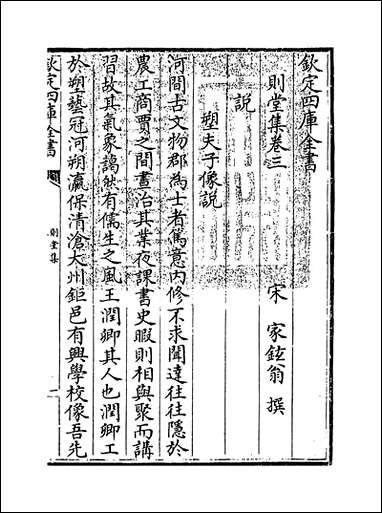 欽定四庫全書
則堂集卷三
宋 家鉉翁 撰
説
塑夫子像説
河間古文物郡為士者篤意内修不求聞達往往隱於
農工商賈之間晝治其業夜課書史暇則相與聚而講
習故其氣象藹然有儒生之風王潤卿其人也潤卿工
於塑藝冠河朔瀛保清滄大州鉅邑有興學校像吾先
欽定四庫全書
則堂集
一